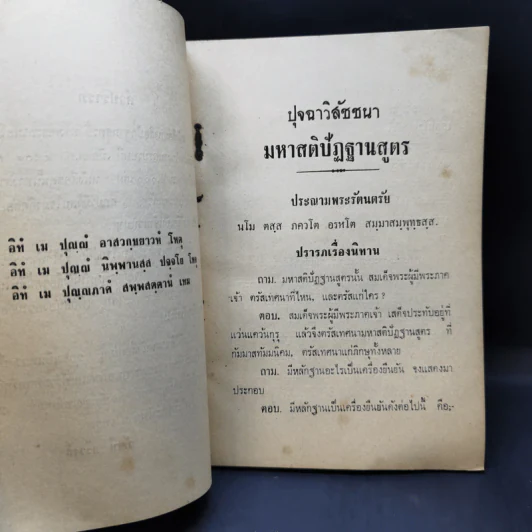 อิทํ เม ปุญฺญํ อาสวกฺขยาวหํ โหตุ
อิทํ เม ปุญฺญํ นิพฺพานสฺส ปจฺจโย โหตุ
อิทํ เม ปุญฺญภาคํ สพฺพสตฺตานํ เทม
ปุจฉาวิสัชชนา
มหาสติปัฏฐานสูตร
ประณามพระรัตนตรัย
นโม ตสฺส ภควโต อรหโต สมฺมาสมฺพุทฺธสฺส.
ปรารภเรื่องนิทาน
ถาม. มหาสติปัฏฐานสูตรนั้น สมเด็จพระผู้มีพระภาค
เจ้า ตรัสเทศนาที่ไหน, และตรัสแก่ใคร ?
ตอบ. สมเด็จพระผู้มีพระภาคเจ้า เสด็จประทับอยู่ที่
แว่นแคว้นกุรุ แล้วจึงตรัสเทศนามหาสติปัฏฐานสูตร ที่
กัมมาสทัมมนิคม, ตรัสเทศนาแก่ภิกษุทั้งหลาย
ถาม. มีหลักฐานอะไรเป็นเครื่องยืนยัน จงแสดงมา
ประกอบ
ตอบ. มีหลักฐานเป็นเครื่องยืนยันดังต่อไปนี้ คือ;-